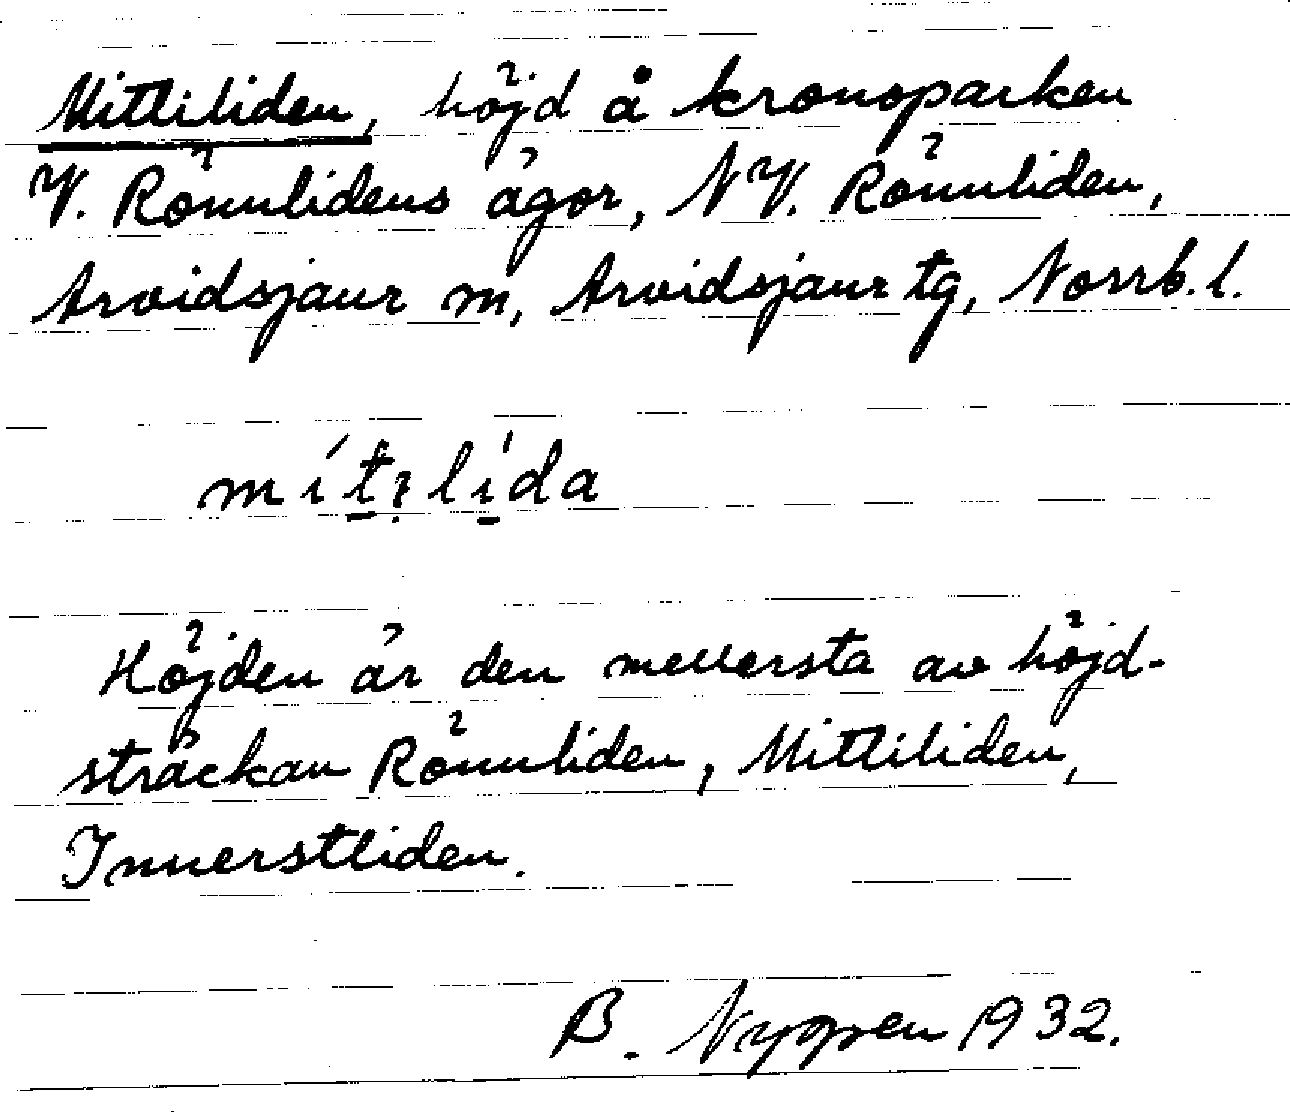 Mittiliden, höjd å kronoparken
V. Rönnlidens ägor, NV. Rönnliden,
Arvidsjaur m, Arvidsjaur tg, Norrb. l.
mítịlída
Höjden är den mellersta av höjd-
sträckan Rönnliden, Mittiliden,
Innerstliden.
B. 1932.